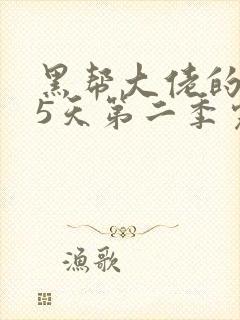 黑帮大佬的
5天第二季
漁歌